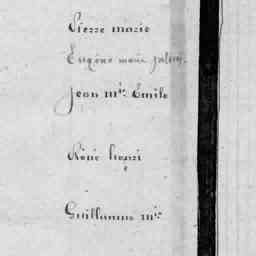 Pierre marie
Eugène marie
Jean mie Emile
René henri
Guillaume mie